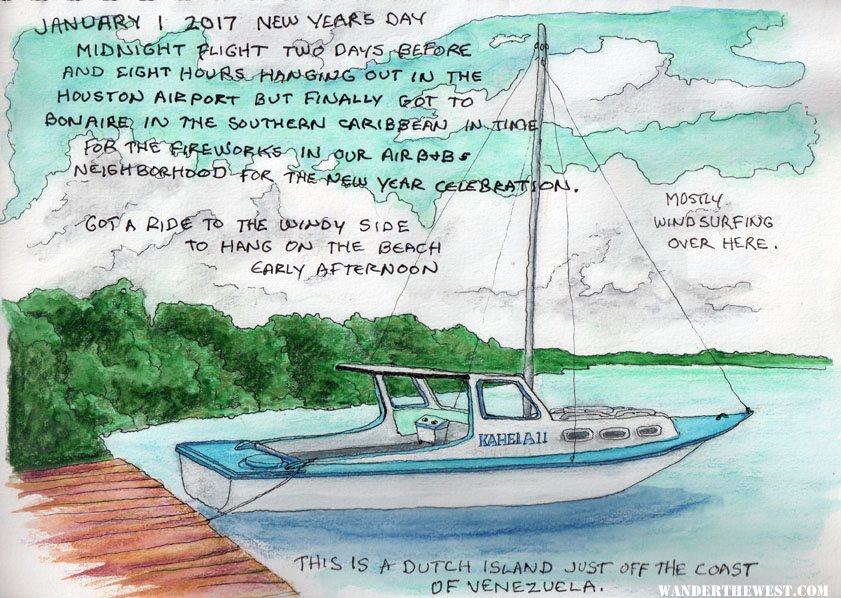 JANUARY 1 2017 NEW YEARS DAY
MIDNIGHT FLIGHT TWO DAYS BEFORE
AND EIGHT HOURS HANGING OUT IN THE
HOUSTON AIRPORT BUT FINALLY GOT TO
BONAIRE IN THE SOUTHERN CARIBBEAN IN TIME
FOR THE FIREWORKS IN OUR AIRB&Bs
NEIGHBORHOOD FOR THE NEW YEAR CELEBRATION.
GOT A RIDE TO THE WINDY SIDE
TO HANG ON THE BEACH
EARLY AFTERNOON
MOSTLY
WINDSURFING
OVER HERE.
KAHELA II
THIS IS A DUTCH ISLAND JUST OFF THE COAST
OF VENEZUELA.
WANDERTHEWEST.COM